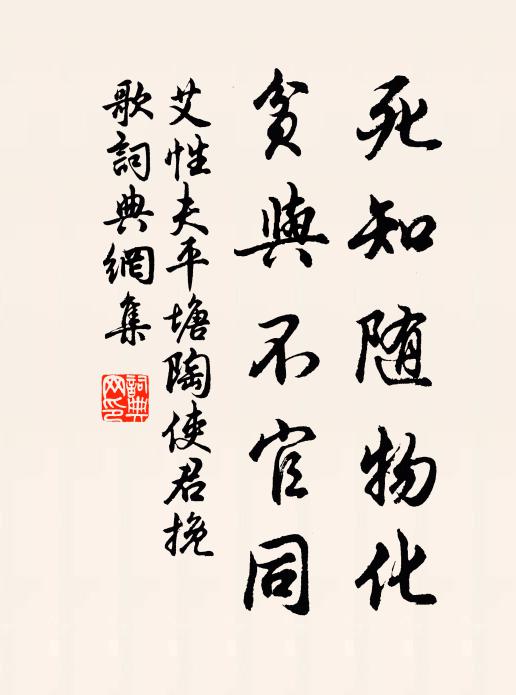 死知随物化
貧與不官同
艾性夫平塘陶使君挽
歌詞典網集
詞典
网印